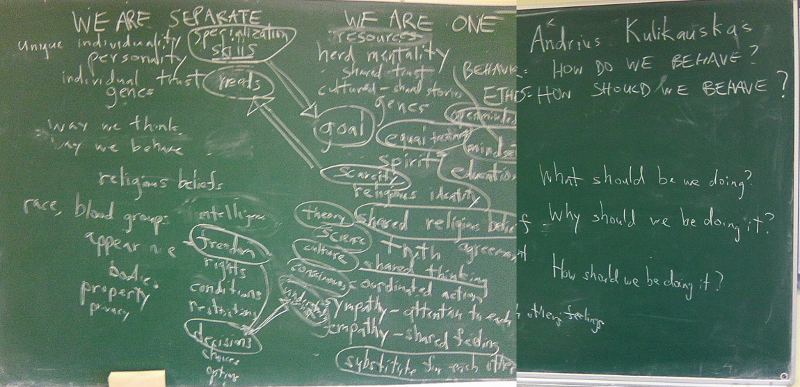 WE ARE SEPARATE
specialization
skills
unique individuality
personality
individual trust
genes
needs
way we think
way we behave
religious beliefs
race, blood groups
intelligence
freedom
rights
conditions
restrictions
property
privacy
decisions
choices
options
WE ARE ONE
resources
herd mentality
shared trust
cultural-shared stories
genes
goal
spirit
scarcity
religious identity
theory
shared religious
science
culture
Truth
shared thinking
coordinated action
sympathy-attention to each
empathy-shared feeling
substitute for each other
education
Andrius Kulikauskas
HOW DO WE BEHAVE?
HOW SHOULD WE BEHAVE?
What should be we doing?
Why should we be doing it?
How should we be doing it?